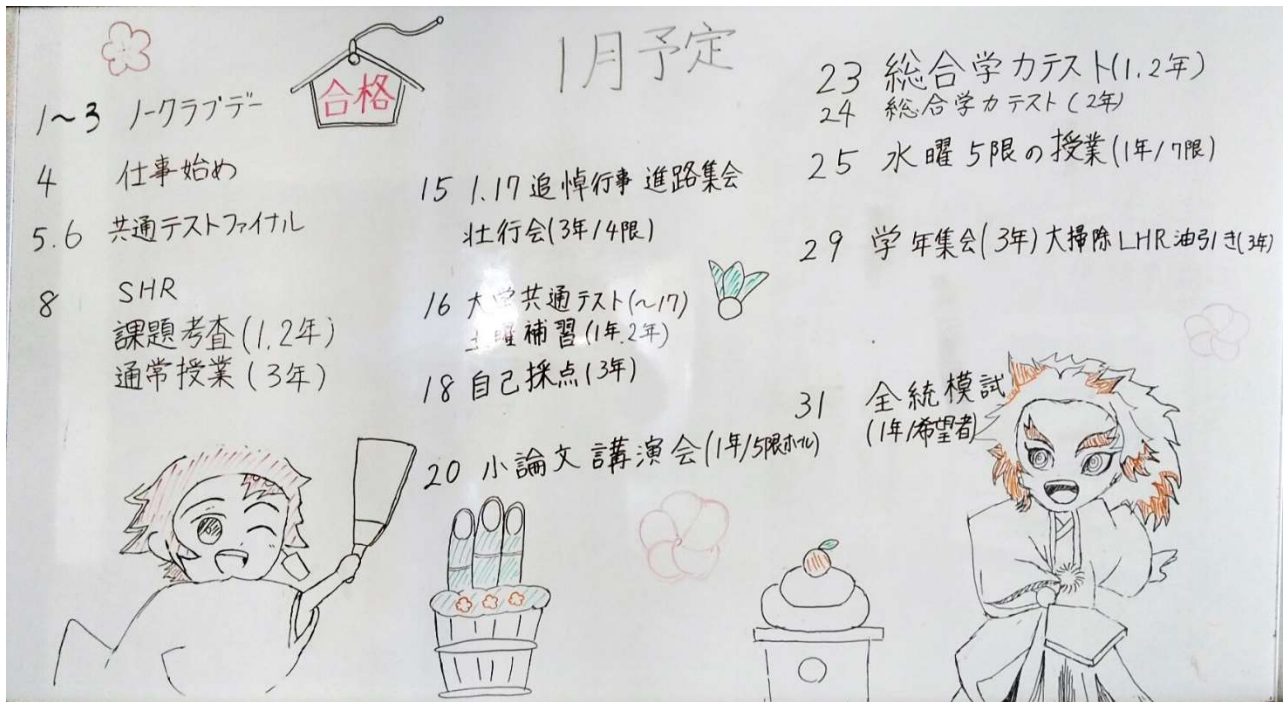 1月予定
合格
1~3 ノークラブデー
4 仕事始め
5.6 共通テストファイナル
8 SHR
課題考査(1,2年)
通常授業(3年)
15 1.17追悼行事 進路集会
壮行会(3年/4限)
16 大学共通テスト(~17)
土曜補習(1年.2年)
18 自己採点(3年)
20 小論文講演会(1年/5限ホール)
23 総合学力テスト(1.2年)
24 総合学力テスト(2年)
25 水曜5限の授業(1年/7限)
29 学年集会(3年)大掃除LHR油引き(3年)
31 全統模試
(1年/希望者)